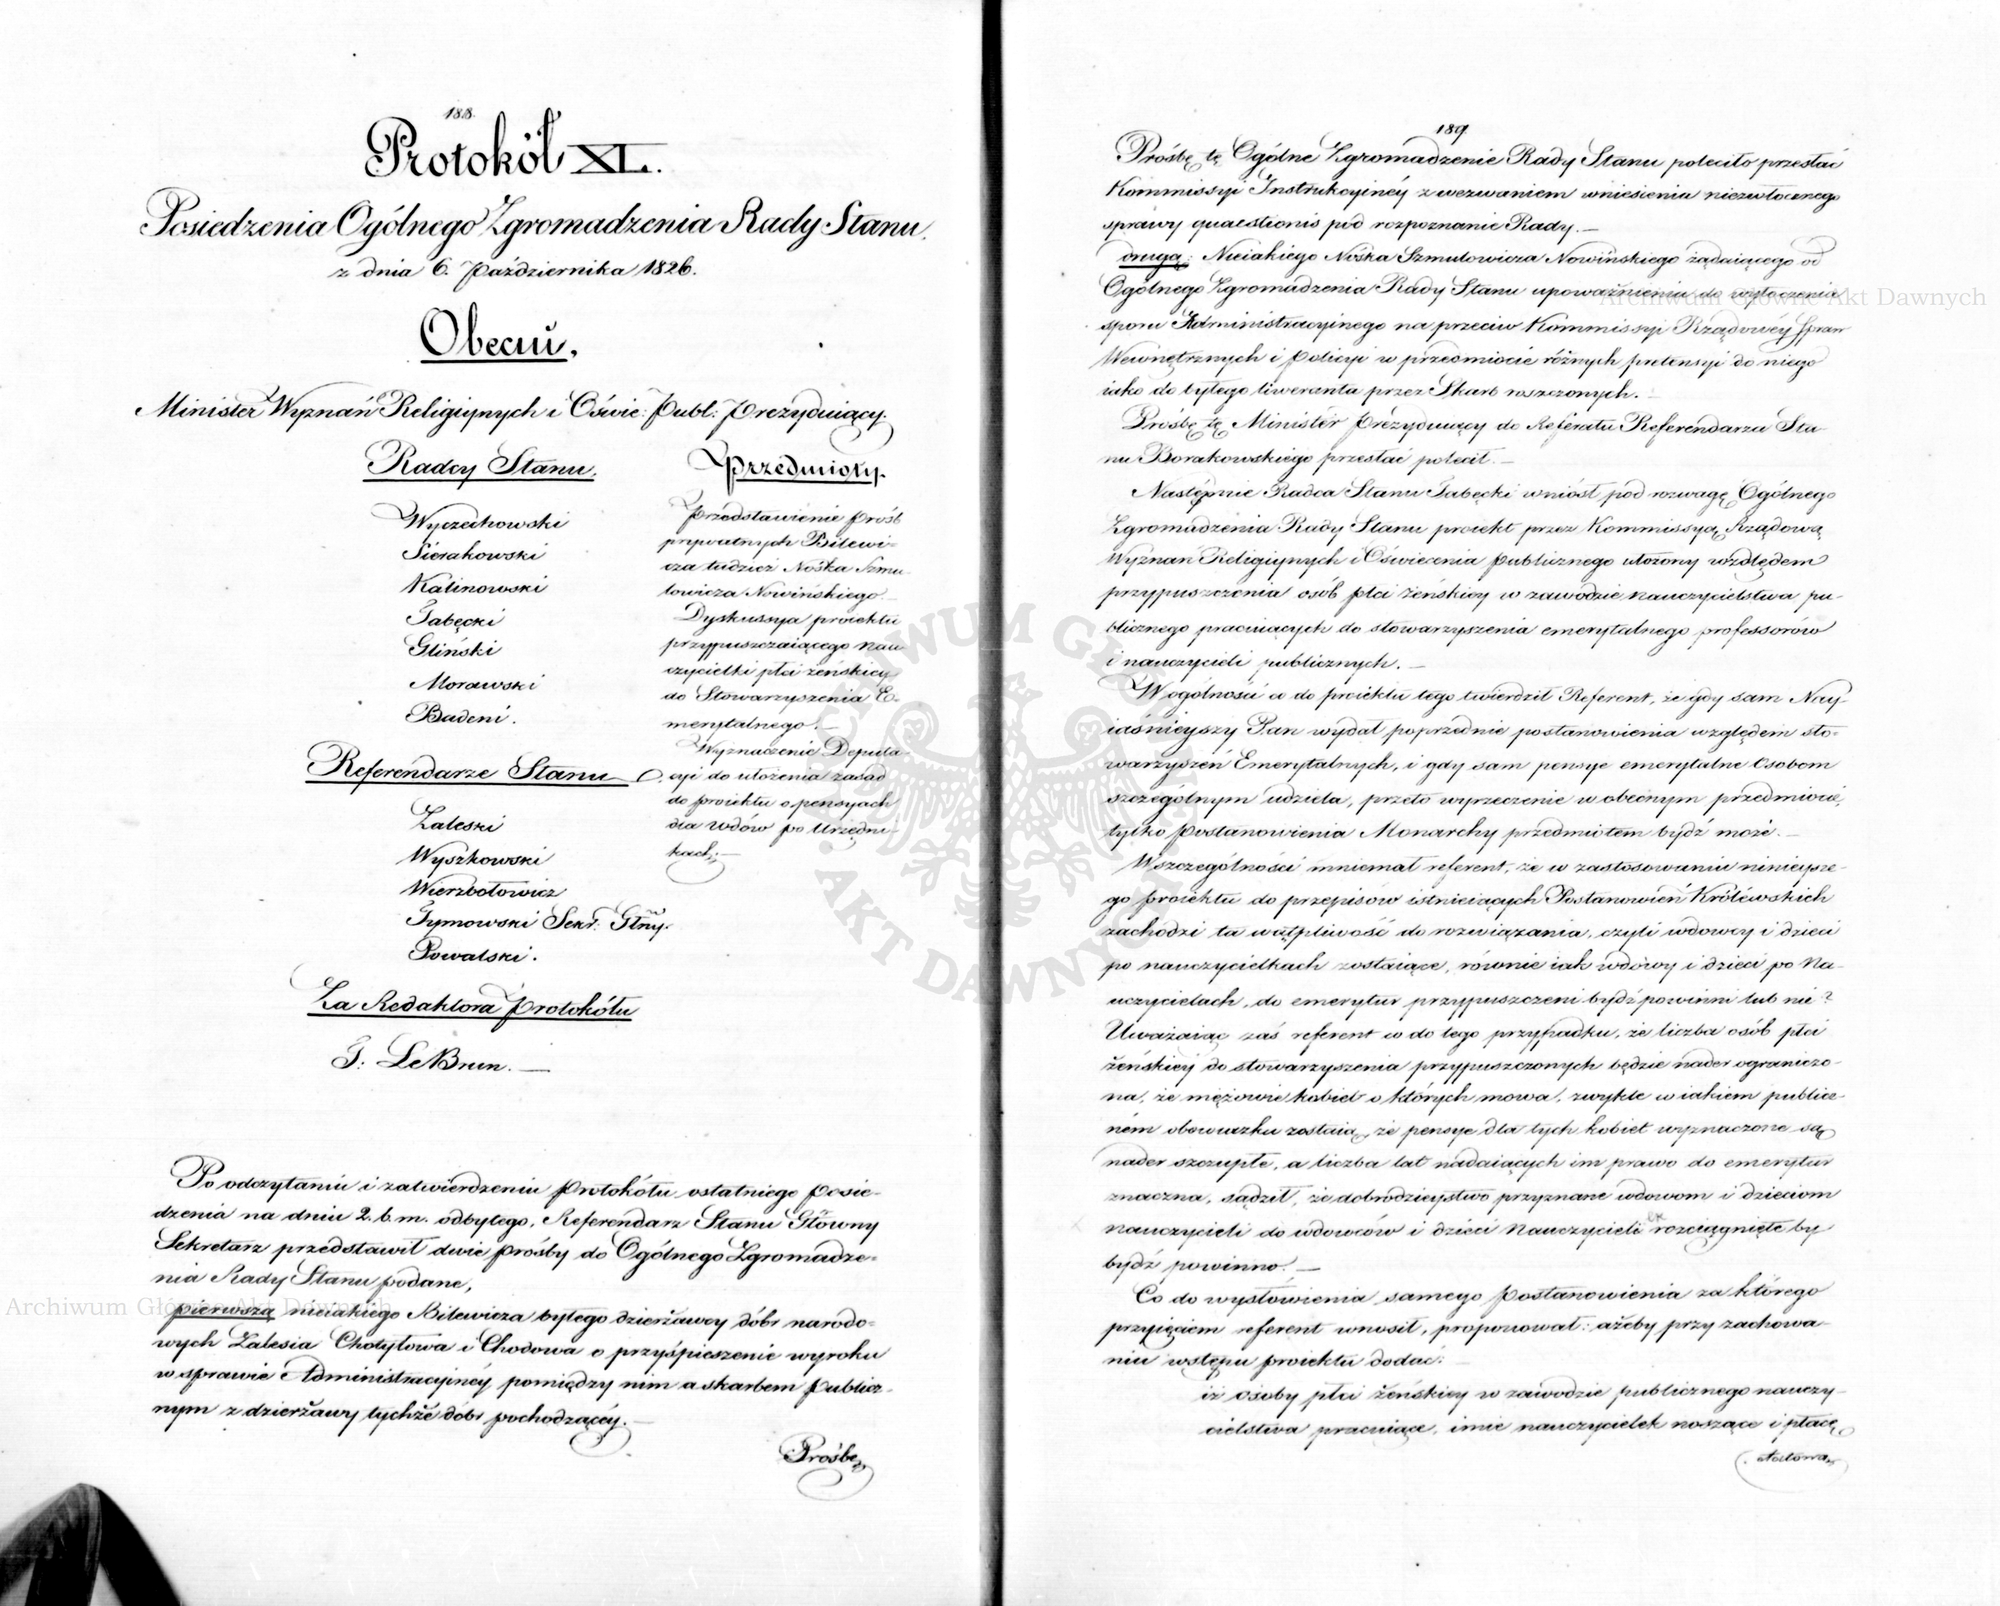 188.
Protokół XL.
Posiedzenia Ogólnego Zgromadzenia Rady Stanu.
z dnia 6. Października 1826.
Obecni.
Minister Wyznań Religiynych i Oświe: Publ: Prezyduiący.
Radcy Stanu.
Wyczechowski
Sierakowski
Kalinowski
Tabęcki
Gliński
Morawski
Badeni.
Referendarze Stanu
Zaleski
Wyszkowski
Wierzbołowicz
Tymowski Sekr: Głny.
Powalski.
Za Redaktora Protokółu
J: LeBrun. —
Przedmioty.
Przedstawienie próśb
prywatnych Bilewi-
cza tudzież Nośka Szmu
lowicza Nowińskiego. —
Dyskussya proiektu
przypuszczaiącego nau-
czycielki płci żeńskiey
do Stowarzyszenia E-
merytalnego. —
Wyznaczenie Deputa-
cyi do ułożenia zasad
do proiektu o pensyach
dla wdów po Urzędni-
kach; —
Po odczytaniu i zatwierdzeniu Protokółu ostatniego posie-
dzenia na dniu 2. b. m. odbytego, Referendarz Stanu Główny
Sekretarz przedstawił dwie prośby do Ogólnego Zgromadze-
nia Rady Stanu podane,
pierwszą nieiakiego Bilewicza byłego dzierżawcy dóbr narodo-
wych Zalesia Chotyłowa i Chodowa o przyśpieszenie wyroku
w sprawie Administracyinéy pomiędzy nim a skarbem publicz-
nym z dzierżawy tychże dóbr pochodzącéy. —
Prośbę
189.
Prośbę tę Ogólne Zgromadzenie Rady Stanu poleciło przesłać
Kommissyi Instrukcyinéy z wezwaniem wniesienia niezwłocznego
sprawy quaestionis pod rozpoznanie Rady. —
drugą: Nieiakiego Nośka Szmulowicza Nowińskiego żądaiącego od
Ogólnego Zgromadzenia Rady Stanu upoważnienia do wytoczenia
sporu Administracyinego na przeciw Kommissyi Rządowéy Spraw
Wewnętrznych i Policyi w przedmiocie różnych pretensyi do niego
iako do byłego liweranta przez Skarb roszczonych. —
Prośbę tę Minister Prezyduiący do Referatu Referendarza Sta-
nu Borakowskiego przesłać polecił. —
Następnie Radca Stanu Tabęcki wniósł pod rozwagę Ogólnego
Zgromadzenia Rady Stanu proiekt przez Kommissyą Rządową
Wyznań Religiynych i Oświecenia Publicznego ułożony względem
przypuszczenia osób płci żeńskiey w zawodzie nauczycielstwa pu-
blicznego pracuiących do stowarzyszenia emerytalnego professorów
i nauczycieli publicznych. —
W ogólności co do proiektu tego twierdził Referent, że gdy sam Nay-
iaśnieyszy Pan wydał poprzednie postanowienia względem sto-
warzyszeń Emerytalnych, i gdy sam pensye emerytalne Osobom
szczególnym udziela, przeto wyrzeczenie w obecnym przedmiocie,
tylko Postanowienia Monarchy przedmiotem bydź może. —
W szczególności mniemał referent, że w zastosowaniu ninieysze-
go proiektu do przepisów istnieiących Postanowień Królewskich
zachodzi ta wątpliwość do rozwiązania, czyli wdowcy i dzieci
po nauczycielkach zostaiące, równie iak wdowy i dzieci po na-
uczycielach, do emerytur przypuszczeni bydź powinni lub nie?
Uważaiąc zaś referent co do tego przypadku, że liczba osób płci
żeńskiéy do stowarzyszenia przypuszczonych będzie nader ograniczo-
na, że mężowie kobiet o których mowa, zwykle w iakiem publicz-
ném obowiązku zostaią, że pensye dla tych kobiet wyznaczone są
nader szczupłe, a liczba lat nadaiących im prawo do emerytur
znaczna, sądził, że dobrodzieystwo przyznane wdowom i dzieciom
nauczycieli do wdowców i dzieci Nauczycielek rozciągnięte by
bydź powinno. —
Co do wysłowienia samego Postanowienia za którego
przyięciem referent wnosił, proponował: ażeby przy zachowa-
niu wstępu proiektu dodać:
iż osoby płci żeńskiey w zawodzie publicznego nauczy-
cielstwa pracuiące, imie nauczycielek noszące i płacę
Archiwum Główne Akt Dawnych
Archiwum Główne Akt Dawnych
ARCHIWUM GŁÓWNE AKT DAWNYCH